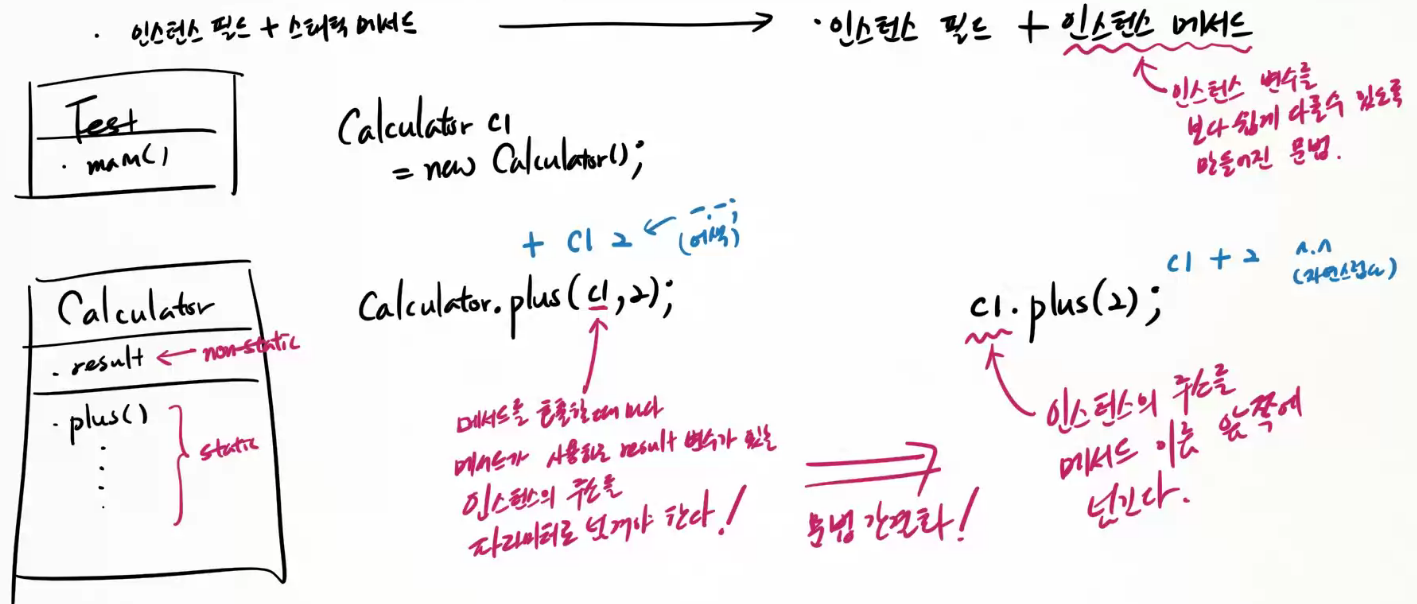 · 인스턴스 필드 + 스태틱 메서드
· 인스턴스 필드 + 인스턴스 메서드
인스턴스 변수를
보다 쉽게 다룰수 있도록
만들어진 문법.
Test
· main()
Calculator c1
= new Calculator();
+ c1 2 ← -.-;
(어색)
Calculator.plus(c1,2);
c1 + 2 ^.^
(자연스럽다)
c1.plus(2);
Calculator
· result ← non-static
· plus()
static
메서드를 호출할때 마다
메서드가 사용하는 result 변수가 있는
인스턴스의 주소를
파라미터로 넘겨야 한다!
문법 간결화!
인스턴스의 주소를
메서드 이름 앞쪽에
넘긴다.